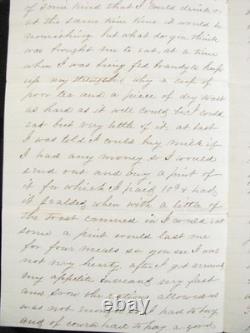 of some kind that I could drink or
at the same time it would be
nourishing but what do you think
was brought me to eat, at a time
when I was being fed brandy to keep
up my why a cup of
poor tea and a piece of dry toast
as hard as it well could be I could
eat but very little of it at last
I was told I could buy milk if
I had any money so I would
send out and buy a pint of
it for which I paid 10¢ & had
it scalded when with a little of
the toast crumed in I would eat
some a pint would last me
for four meals so you see I was
not very hearty. after I got around
my appetite increased very fast
and soon the rations allowed
was not I had to buy
and of course had to pay a good
ebay